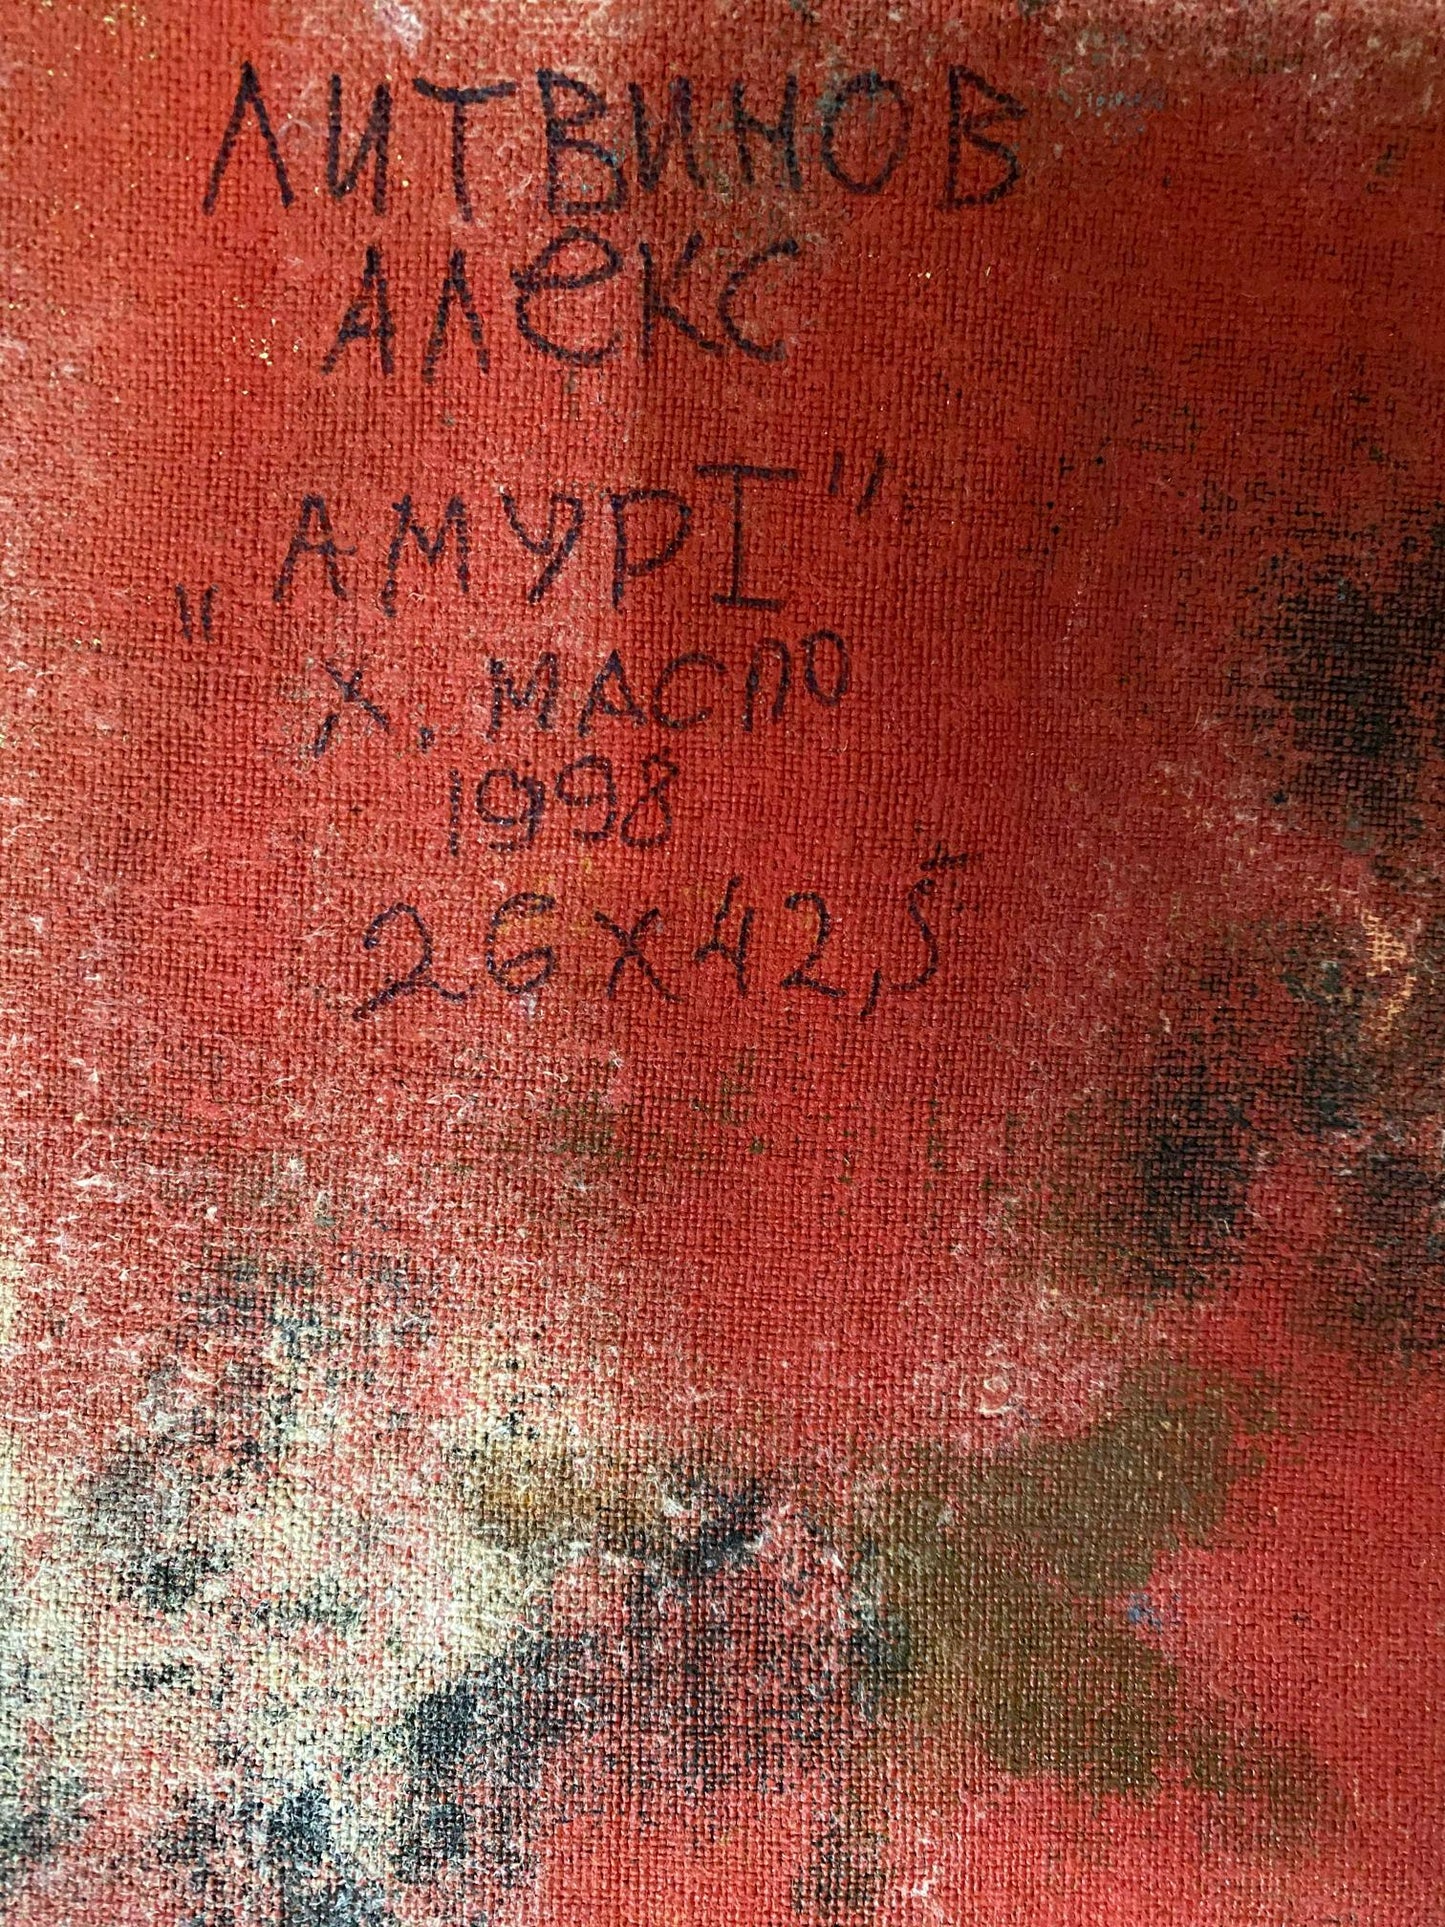 ЛИТВИНОВ
АЛЕКС
„АМУРІ"
Х. МАСЛО
1998
26х42,5